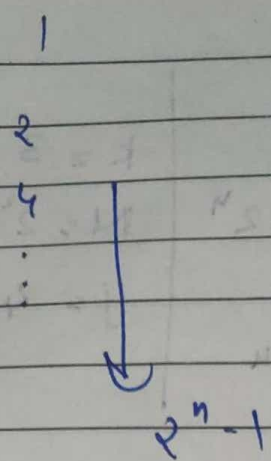 1
2
4
⋮
2ⁿ - 1